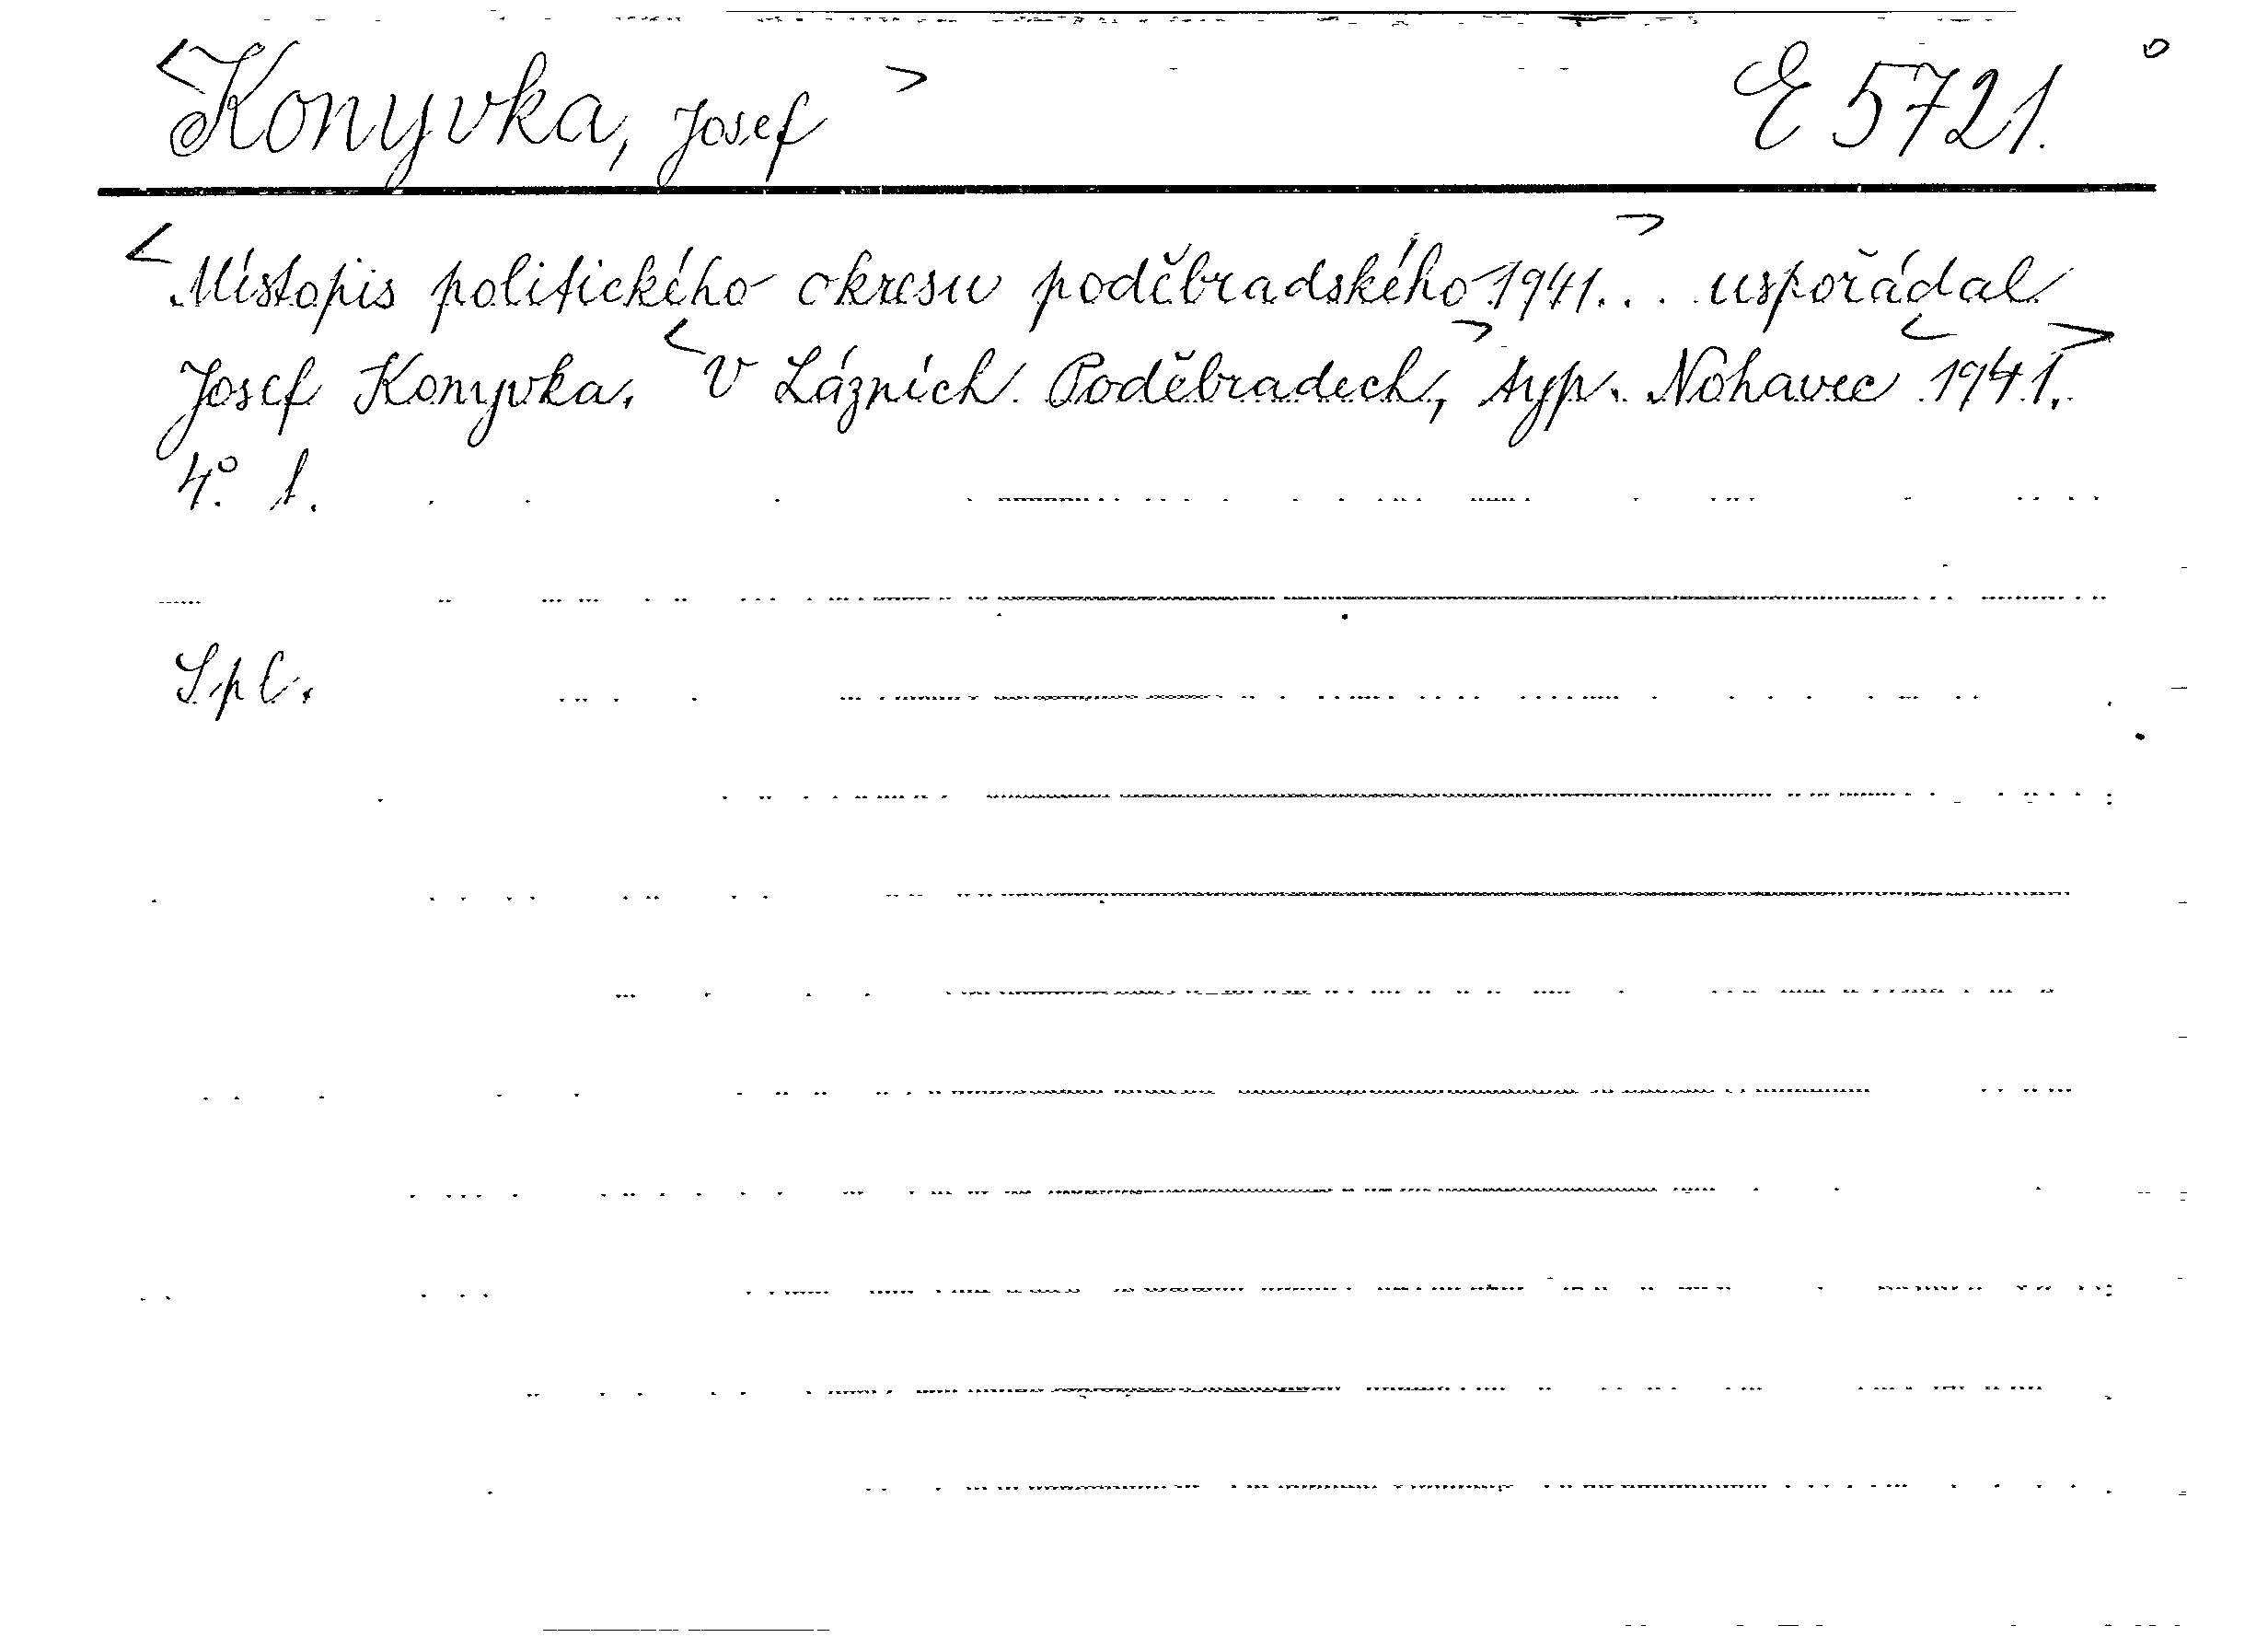 <Konyvka, Josef> E 5721.
<Místopis politického okresu poděbradského> 1941... uspořádal
Josef Konyvka. <V Lázních Poděbradech,> typ. Nohavec <1941.>
4° 1.
Spl.